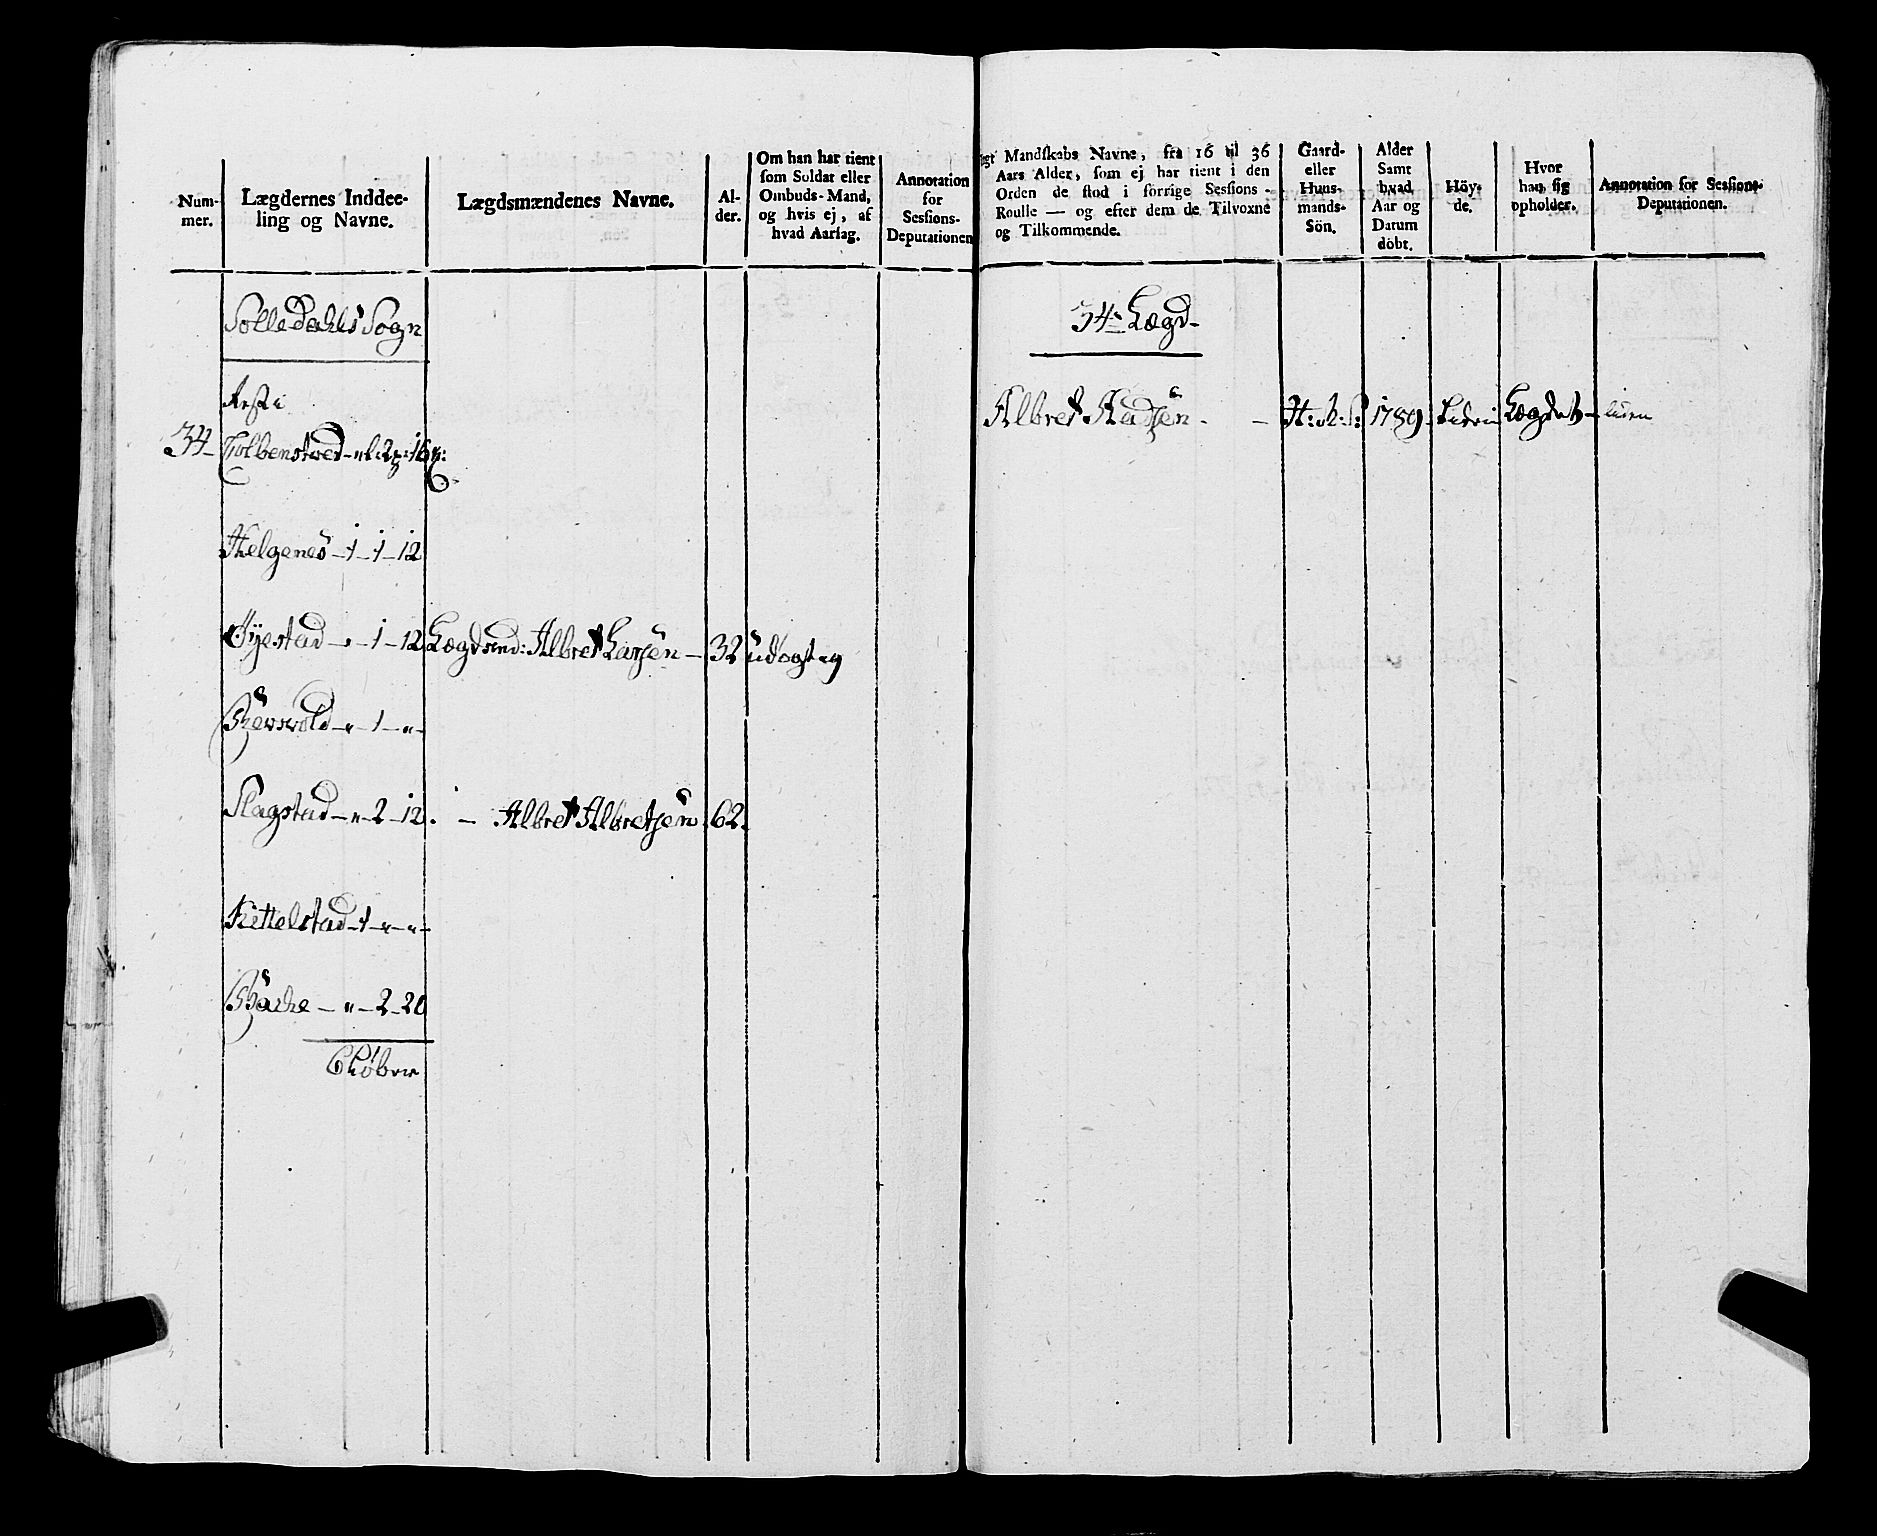 Num-
mer.
Lægdernes Inddee-
ling og Navne.
Lægdsmændenes Navne.
Al-
der.
Om han har tient
som Soldat eller
Ombuds-Mand,
og hvis ej, af
hvad Aarsag.
Annotation
for
Sessions-
Deputationen
Mandskabs Navne, fra 16 til 36
Aars Alder, som ej har tient i den
Orden de stod i forrige Sessions-
Roulle — og efter dem de Tilvoxne
og Tilkommende.
Gaard-
eller
Huus-
mands-
Sön.
Alder
Samt
hvad
Aar og
Datum
döbt.
Höy-
de.
Hvor
han sig
opholder.
Annotation for Sessions-
Deputationen.
Solledahls Sogn
34 Lægd
Albret - H: - 1789 - Lægdet -
34 - 2 - 16
Helgenes - 1 - 1 - 12
Øÿestad - " - 1 - 12 Lægdsmd: Albret Larsen - 32 udygtig
- " - 1 - " -
Slagstad - " - 2 - 12. - Albret Albretsen. 62.
Kittelstad - 1 - " - " -
- " - 2 - 20